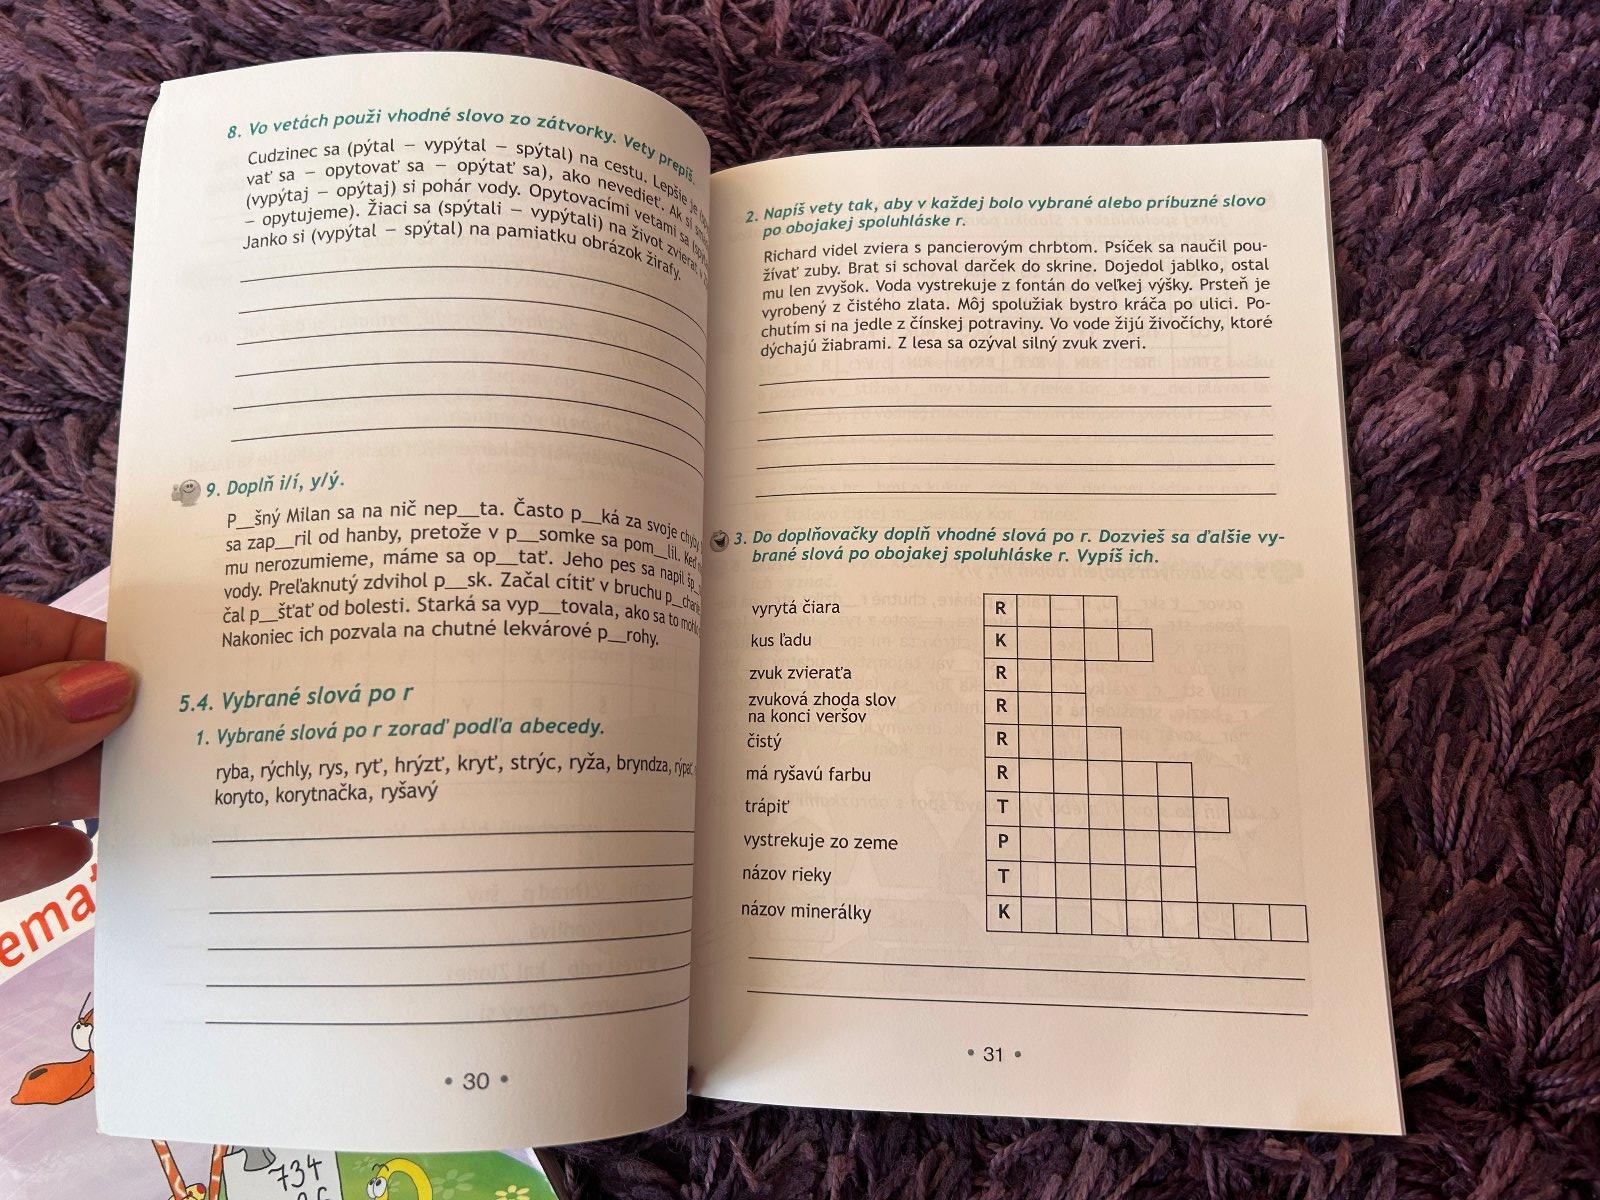 8. Vo vetách použi vhodné slovo zo zátvorky. Vety prepíš.
Cudzinec sa (pýtal − vypýtal − spýtal) na cestu. Lepšie je
vať sa − opytovať sa − opýtať sa), ako nevedieť. Ak si
(vypýtaj − opýtaj) si pohár vody. Opytovacími vetami sa
− opytujeme). Žiaci sa (spýtali − vypýtali) na život zvierat v
Janko si (vypýtal − spýtal) na pamiatku obrázok žirafy.
9. Doplň i/í, y/ý.
P__šný Milan sa na nič nep__ta. Často p__ká za svoje chyby
sa zap__ril od hanby, pretože v p__somke sa pom__lil. Keď
mu nerozumieme, máme sa op__tať. Jeho pes sa napil šp__
vody. Preľaknutý zdvihol p__sk. Začal cítiť v bruchu p__
čal p__šťať od bolesti. Starká sa vyp__tovala, ako sa to mohlo
Nakoniec ich pozvala na chutné lekvárové p__rohy.
5.4. Vybrané slová po r
1. Vybrané slová po r zoraď podľa abecedy.
ryba, rýchly, rys, ryť, hrýzť, kryť, strýc, ryža, bryndza, rýpať,
koryto, korytnačka, ryšavý
• 30 •
2. Napíš vety tak, aby v každej bolo vybrané alebo príbuzné slovo
po obojakej spoluhláske r.
Richard videl zviera s pancierovým chrbtom. Psíček sa naučil pou-
žívať zuby. Brat si schoval darček do skrine. Dojedol jablko, ostal
mu len zvyšok. Voda vystrekuje z fontán do veľkej výšky. Prsteň je
vyrobený z čistého zlata. Môj spolužiak bystro kráča po ulici. Po-
chutím si na jedle z čínskej potraviny. Vo vode žijú živočíchy, ktoré
dýchajú žiabrami. Z lesa sa ozýval silný zvuk zveri.
3. Do doplňovačky doplň vhodné slová po r. Dozvieš sa ďalšie vy-
brané slová po obojakej spoluhláske r. Vypíš ich.
vyrytá čiara R
kus ľadu K
zvuk zvieraťa R
zvuková zhoda slov
na konci veršov R
čistý R
má ryšavú farbu R
trápiť T
vystrekuje zo zeme P
názov rieky T
názov minerálky K
• 31 •
emat
734